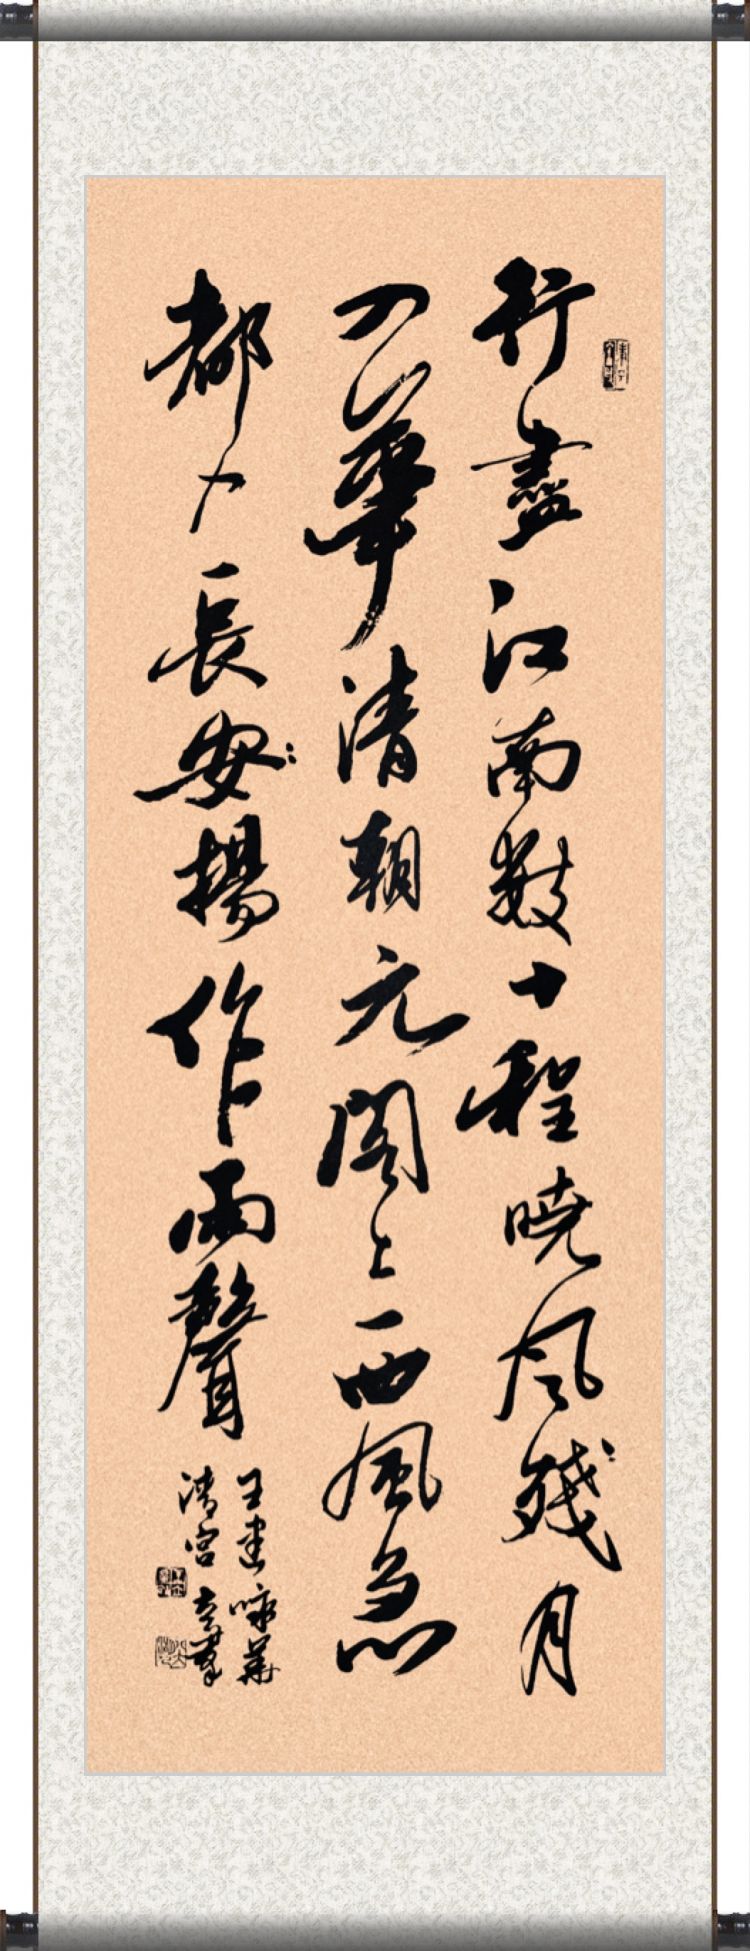 行盡江南數十程曉風殘月
入華清朝元閣上西風急
都入長安揚作雨聲
王建咏華
清宮